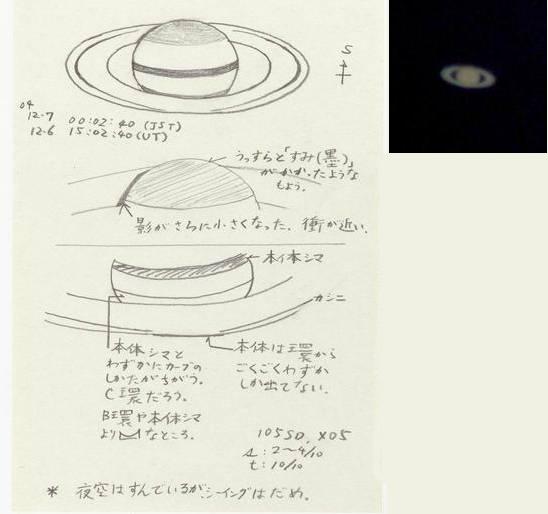 S
04
12.7 00:02:40 (JST)
12.6 15:02:40 (UT)
うっすらと「すみ(墨)」
がかかったような
もよう。
影がさらに小さくなった。衝が近い。
本体シマ
カシニ
本体シマと
わずかにカーブの
しかたがちがう。
C環だろう。
B環や本体シマ
より なところ。
本体は環から
ごくごくわずか
しか出てない。
105SD, X05
s: 2〜4/10
t: 10/10
* 夜空はすんでいるが、シーイングはだめ。